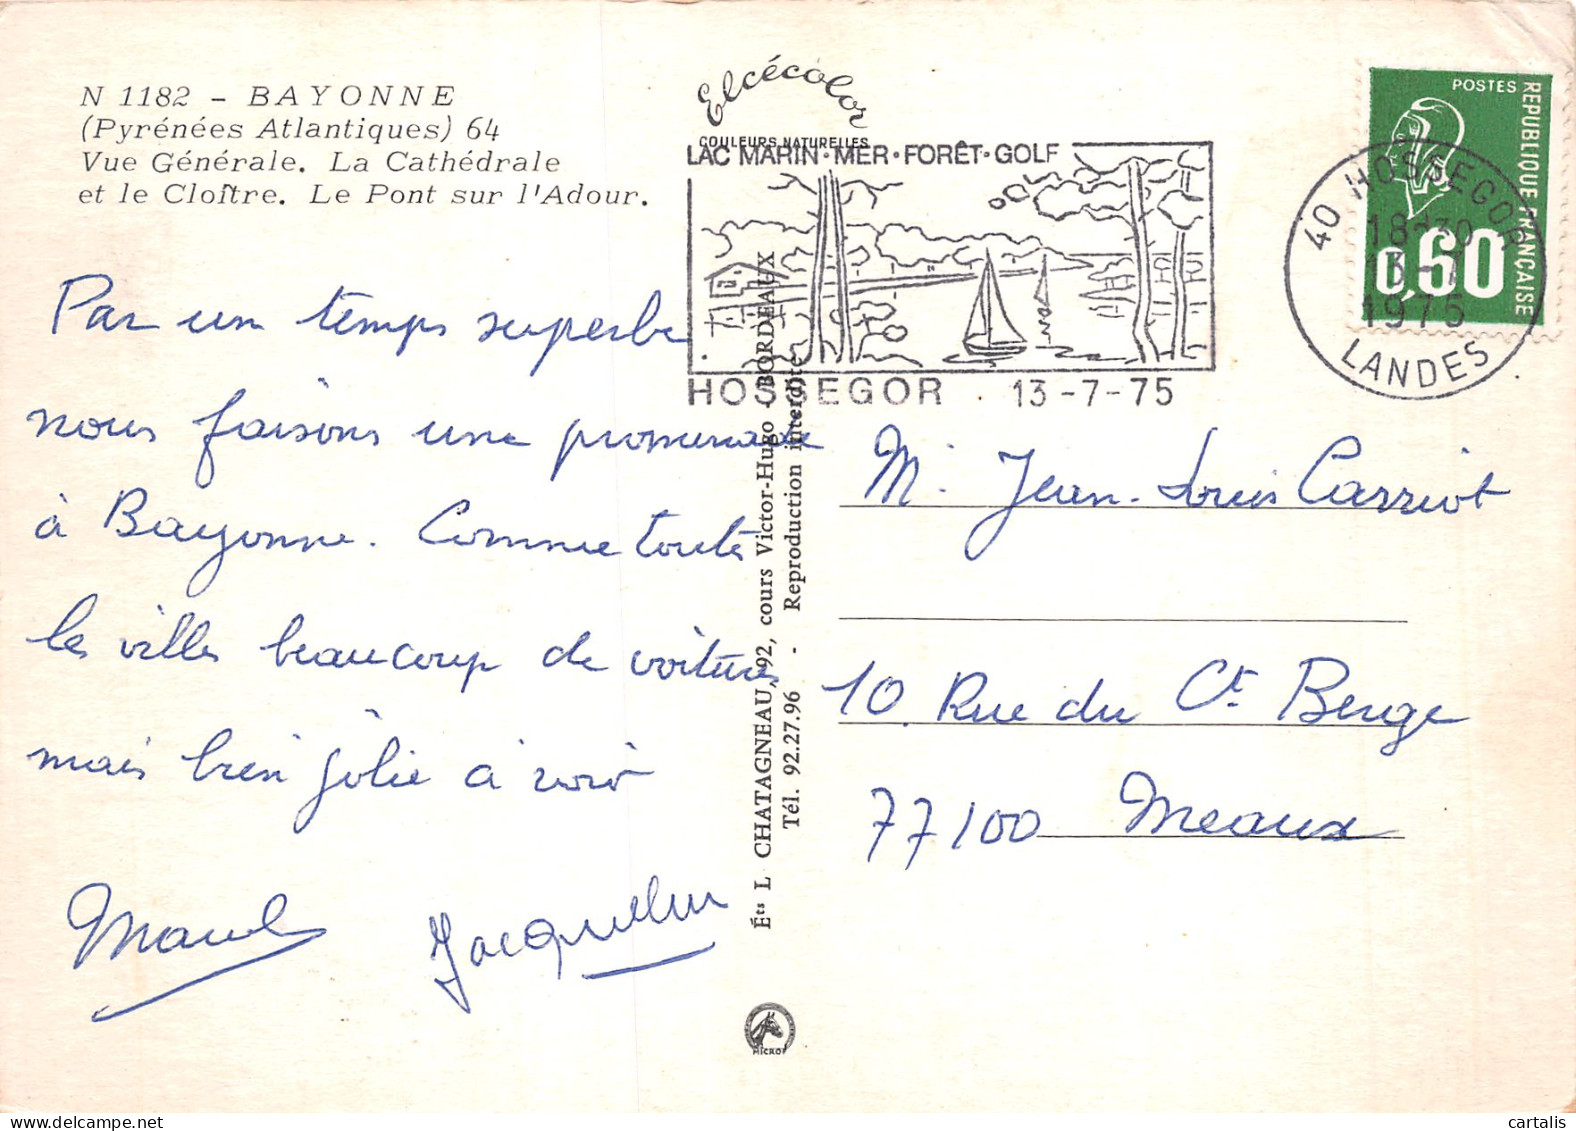 N 1182 - BAYONNE
(Pyrénées Atlantiques) 64
Vue Générale. La Cathédrale
et le Cloître. Le Pont sur l'Adour.
Elcécolor
COULEURS NATURELLES
LAC MARIN·MER·FORÊT·GOLF
HOSSEGOR 13-7-75
POSTES
REPUBLIQUE FRANÇAISE
0,60
40 HOSSEGOR
18-30
13-7
1975
LANDES
Par un temps superbe
nous faisons une promenade
à Bayonne. Comme toutes
les villes beaucoup de voitures
mais bien jolie à voir
Marcel Jacqueline
Éts L CHATAGNEAU, 92, cours Victor-Hugo - BORDEAUX
Tél. 92.27.96 - Reproduction interdite
MICRO
Mr Jean-Louis Carriot
10. Rue du Ct Berge
77100 Meaux
cartalis